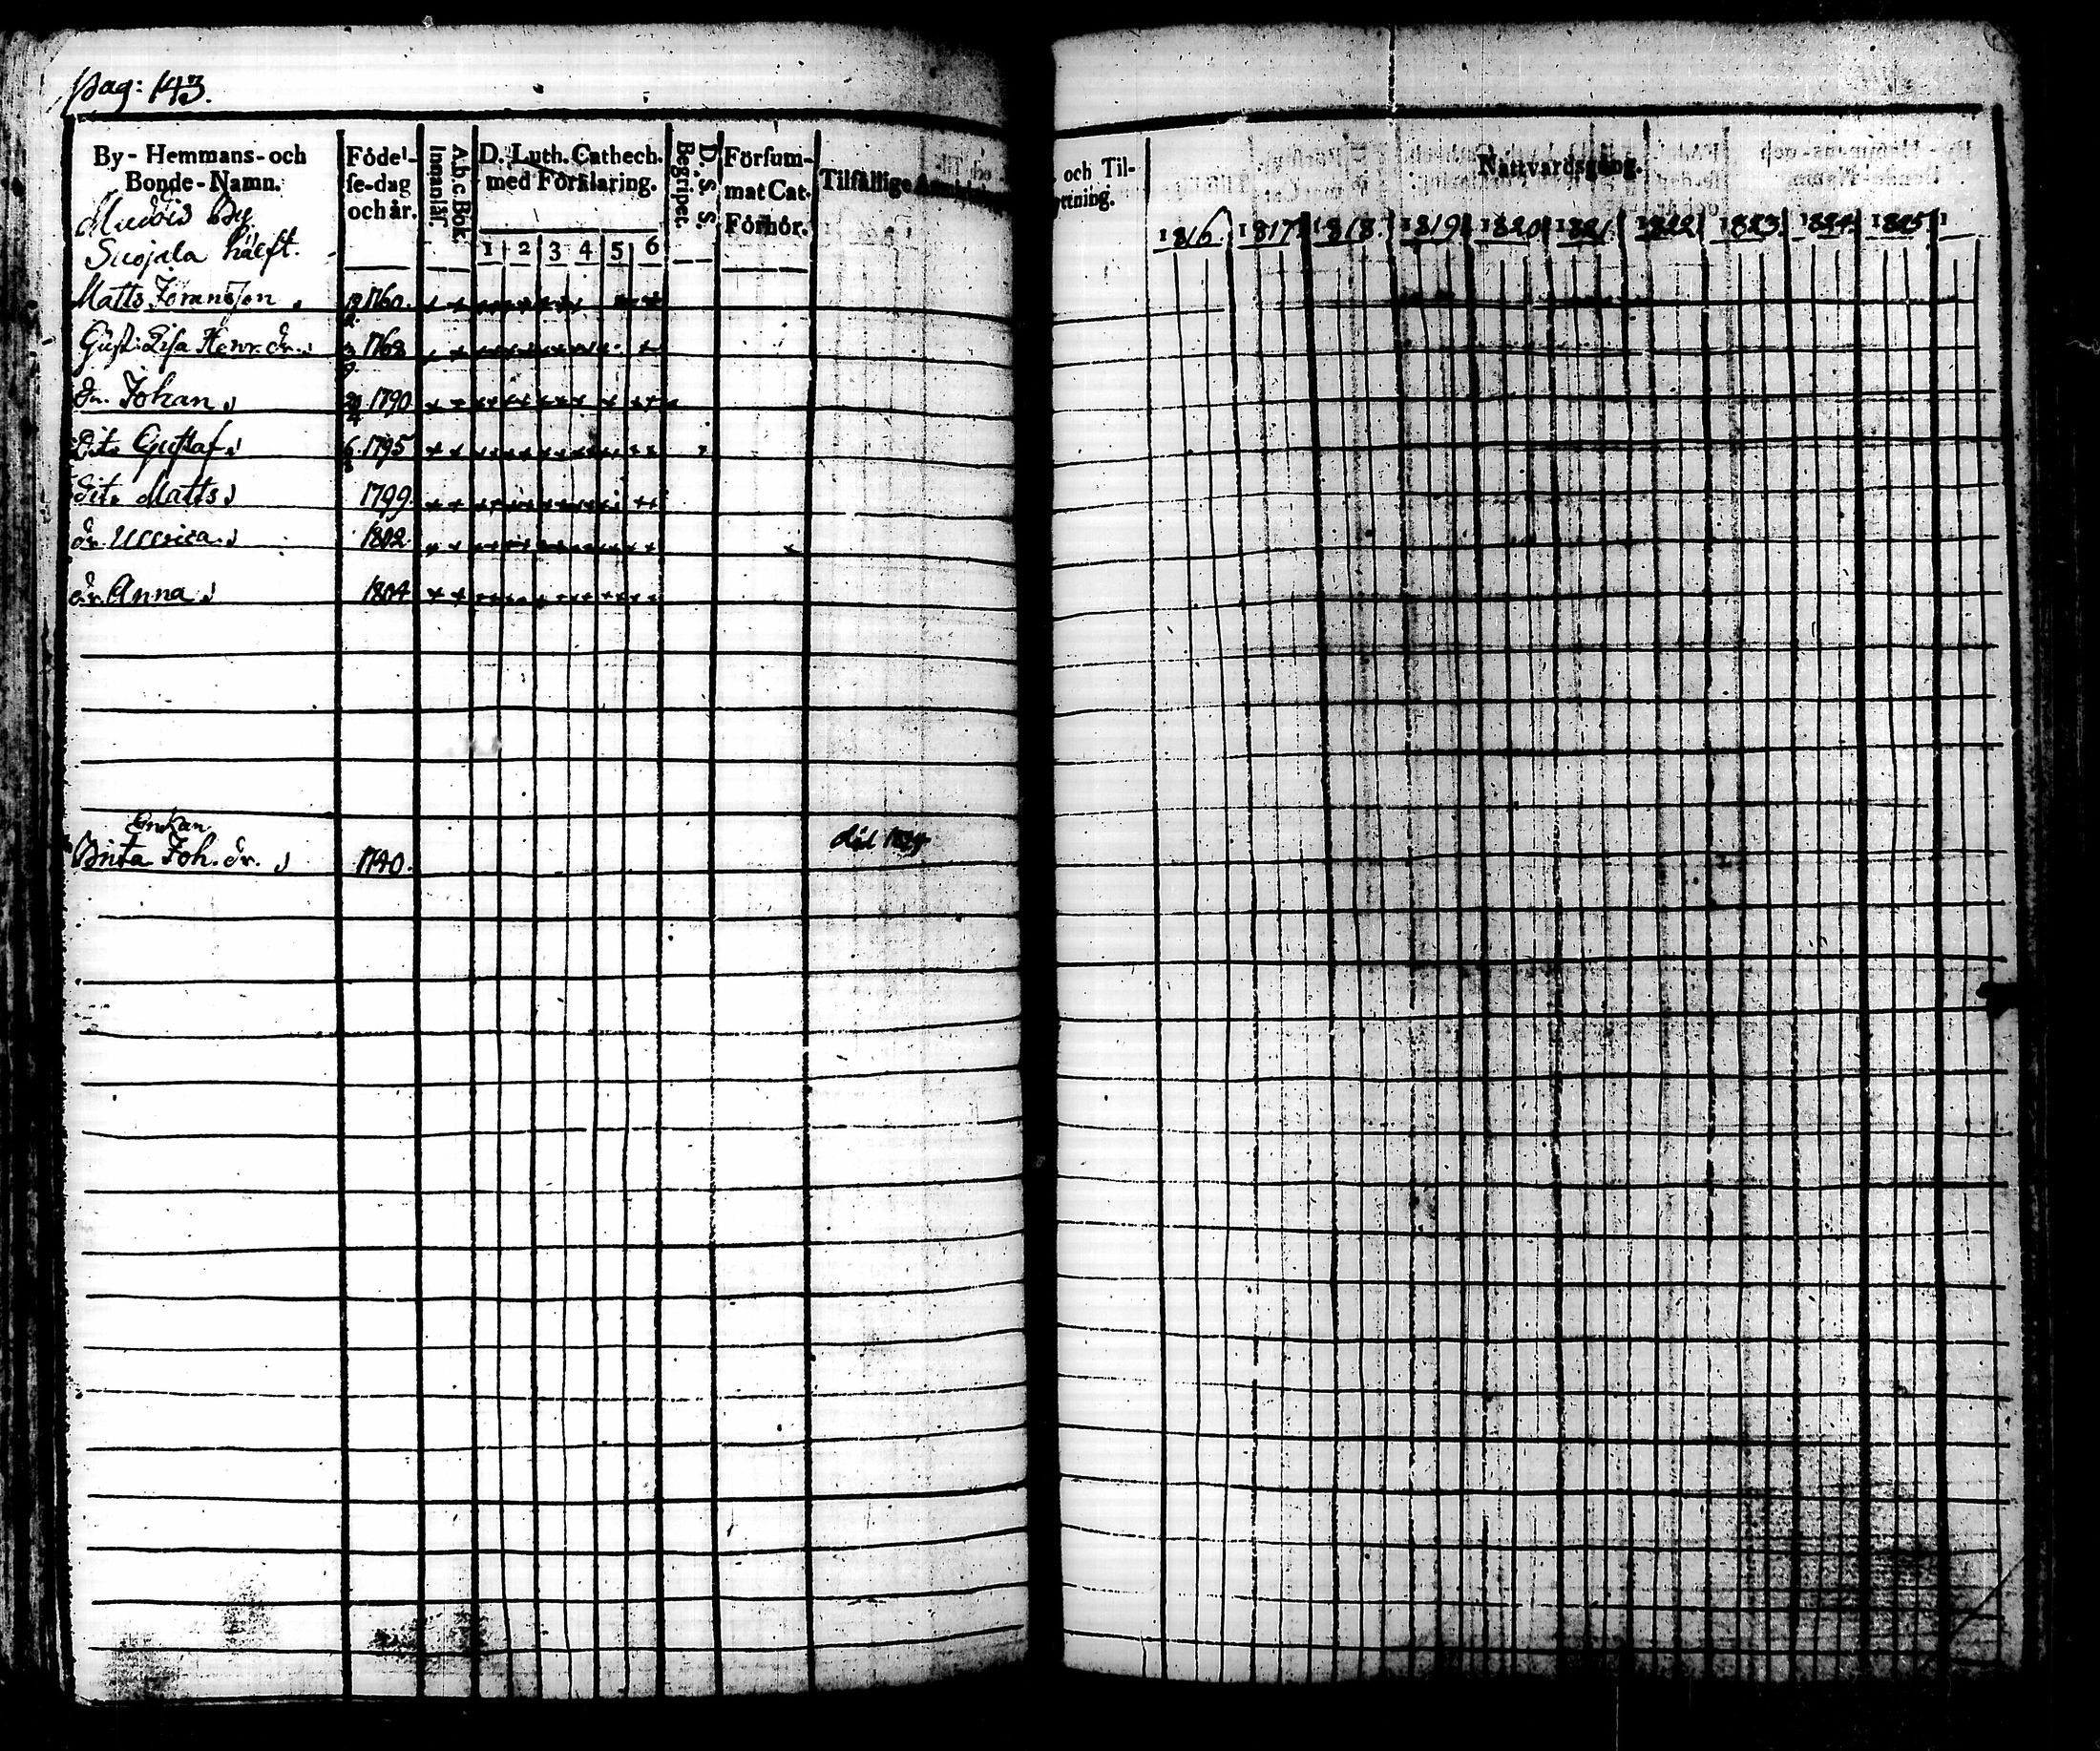 pag: 143.
By-Hemmans-och Bonde-Namn.
Födel-se-dag och år.
A.b.c Bok Innanläs.
D. Luth. Cathech. med Förklaring.
1 2 3 4 5 6
D. S. S. Begripet.
Försum-mat Cat-Förhör.
Tilfällige
och Til-
Nattvardsgång.
1816. 1817 1818. 1819 1820 1821. 1822 1823. 1824. 1825. 1
By
Suojala hälft.
Matts Joransson 1760.
Gust: Lisa Henr. dr. 1768
Sn. Johan 1790
Dito Gustaf 6 1795
Dito Matts 1799.
dr. Ulrica 1802
dr. Anna 1804
Enkan
Brita Joh. dr. 1740.
död 1824